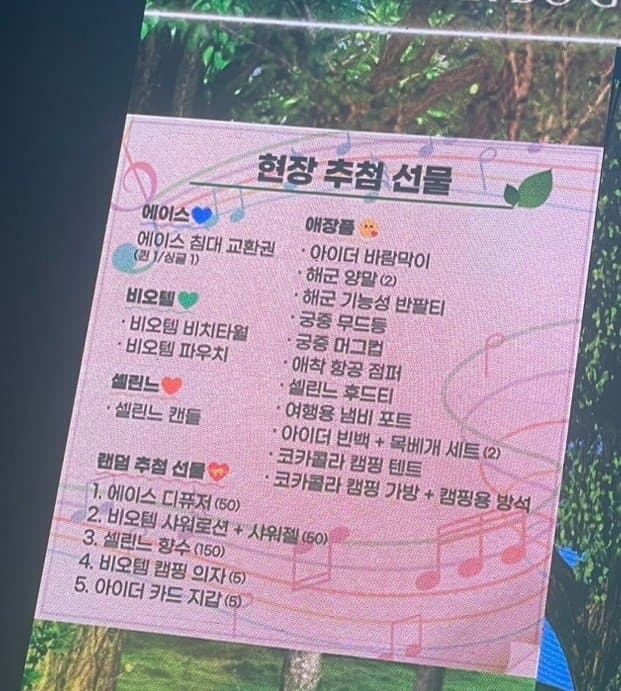 현장 추첨 선물
에이스💙
에이스 침대 교환권
(퀸 1/싱글 1)
비오템💚
· 비오템 비치타월
· 비오템 파우치
셀린느❤️
· 셀린느 캔들
랜덤 추첨 선물💝
1. 에이스 디퓨저 (50)
2. 비오템 샤워로션 + 샤워젤 (50)
3. 셀린느 향수 (150)
4. 비오템 캠핑 의자 (5)
5. 아이더 카드 지갑 (5)
애장품😘
· 아이더 바람막이
· 해군 양말 (2)
· 해군 기능성 반팔티
· 궁중 무드등
· 궁중 머그컵
· 애착 항공 점퍼
· 셀린느 후드티
· 여행용 냄비 포트
· 아이더 빈백 + 목베개 세트 (2)
· 코카콜라 캠핑 텐트
· 코카콜라 캠핑 가방 + 캠핑용 방석